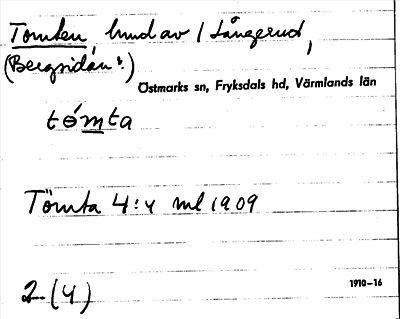 Tomten, hmd av 1 Långerud,
(Bergsidan?)
Östmarks sn, Fryksdals hd, Värmlands län
tómta
Tömta 4:4 ml 1909
2 (4)
1910–16